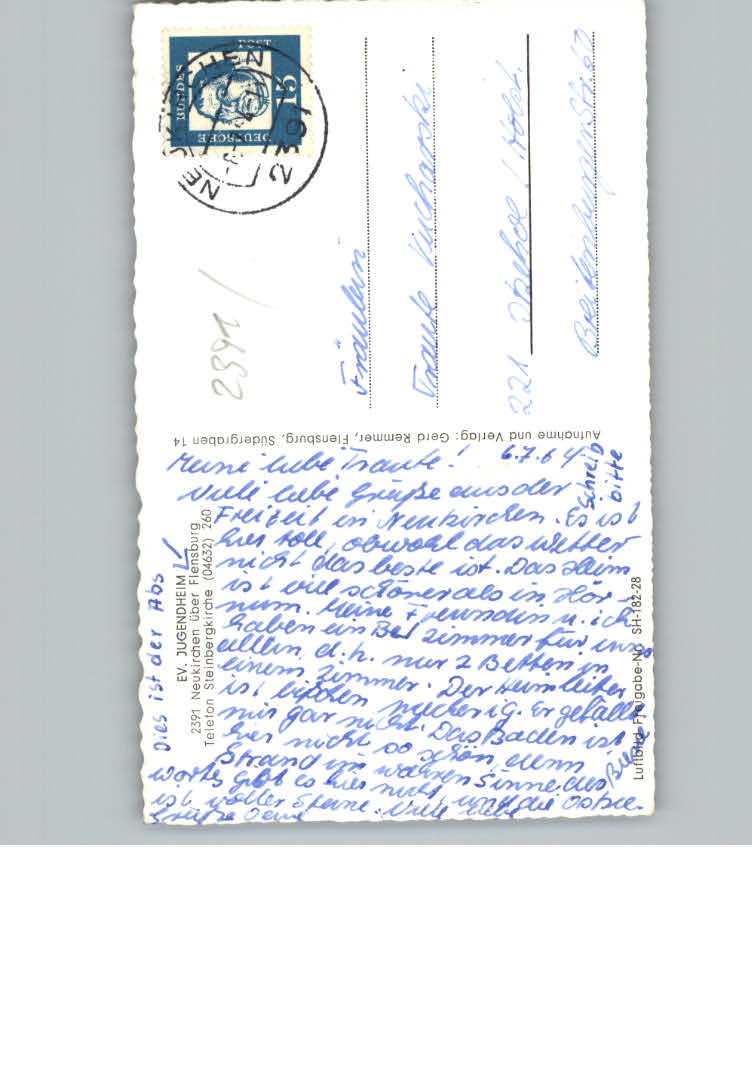 DEUTSCHE
BUNDES
POST
15
NEUKIRCHEN
2391
2391 /
Fräulein
Traute
221 Itzehoe / Holst.
Breitenburger Str. 60
Aufnahme und Verlag: Gerd Remmer, Flensburg, Südergraben 14
Meine liebe Traute! 6.7.64
Viele liebe Grüße aus der
Freizeit in Neukirchen. Es ist
hier toll, obwohl das Wetter
nicht das beste ist. Das Heim
ist viel schöner als in Hör-
num. Meine Freundin u. ich
haben ein Bet zimmer für uns
allein, d.h. nur 2 Betten in
einem Zimmer. Der Heimleiter
ist bißchen meckerig. Er gefällt
mir gar nicht. Das Baden ist
hier nicht so schön, denn
Strand im wahren Sinne des
Wortes gibt es hier nicht, und die Ostsee
ist voller Steine. Viele liebe
Grüße Deine
Schreib
bitte
Dies ist der Abs
EV. JUGENDHEIM
2391 Neukirchen über Flensburg
Telefon Steinbergkirche (04632) 260
Luftbild-Freigabe-Nr. SH-182-28